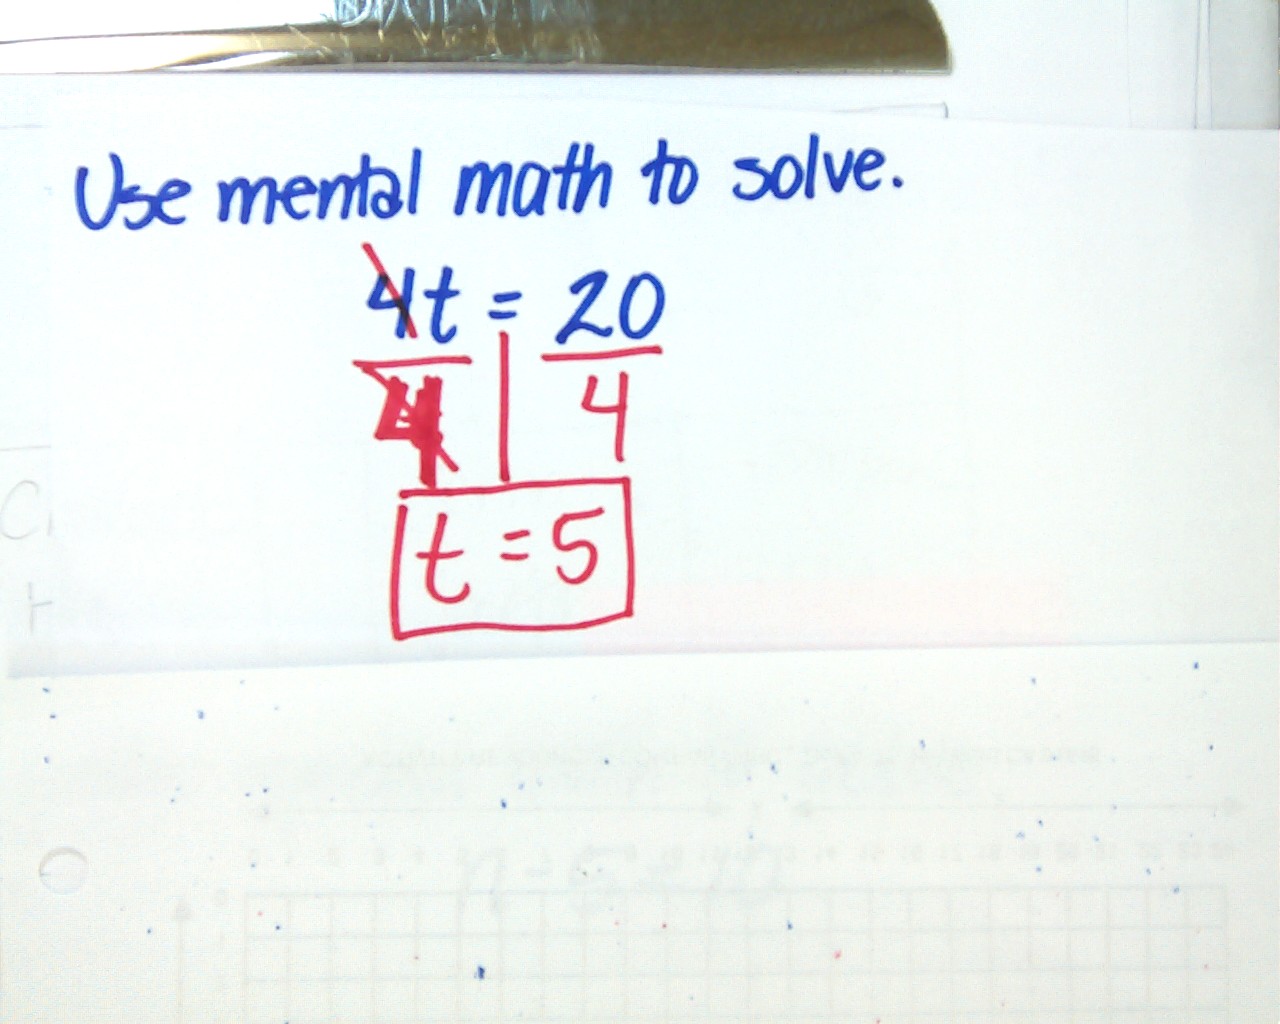 Use mental math to solve.
4t = 20
4 4
t = 5